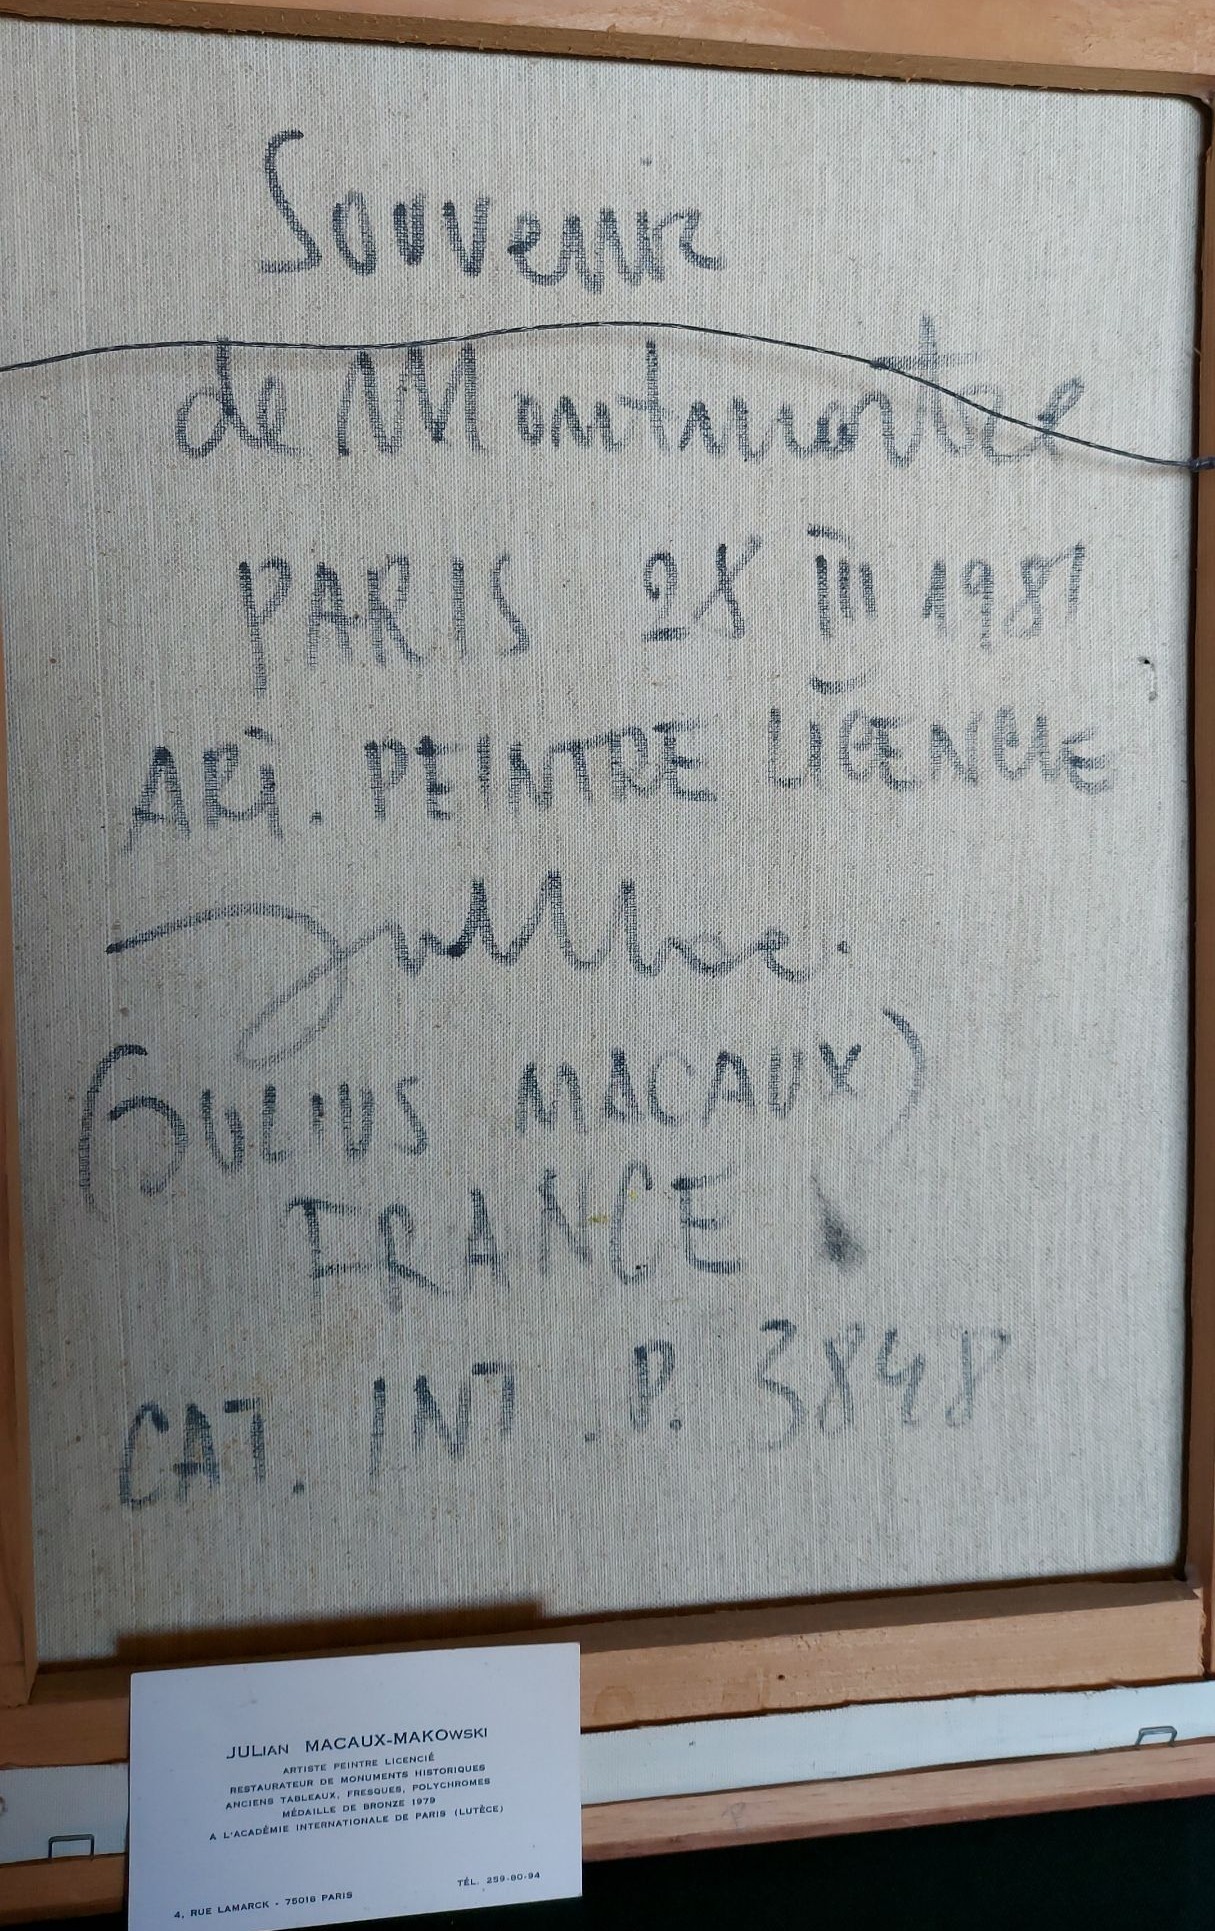 Souvenir
de Montmartre
PARIS 28 III 1981
ART. PEINTRE LICENCIE
(JULIUS MACAUX)
FRANCE
CAT. INT. P. 3848
JULIAN MACAUX-MAKOWSKI
ARTISTE PEINTRE LICENCIÉ
RESTAURATEUR DE MONUMENTS HISTORIQUES
ANCIENS TABLEAUX, FRESQUES, POLYCHROMES
MÉDAILLE DE BRONZE 1979
A L'ACADÉMIE INTERNATIONALE DE PARIS (LUTÈCE)
TÉL. 259-80-94
4, RUE LAMARCK - 75018 PARIS